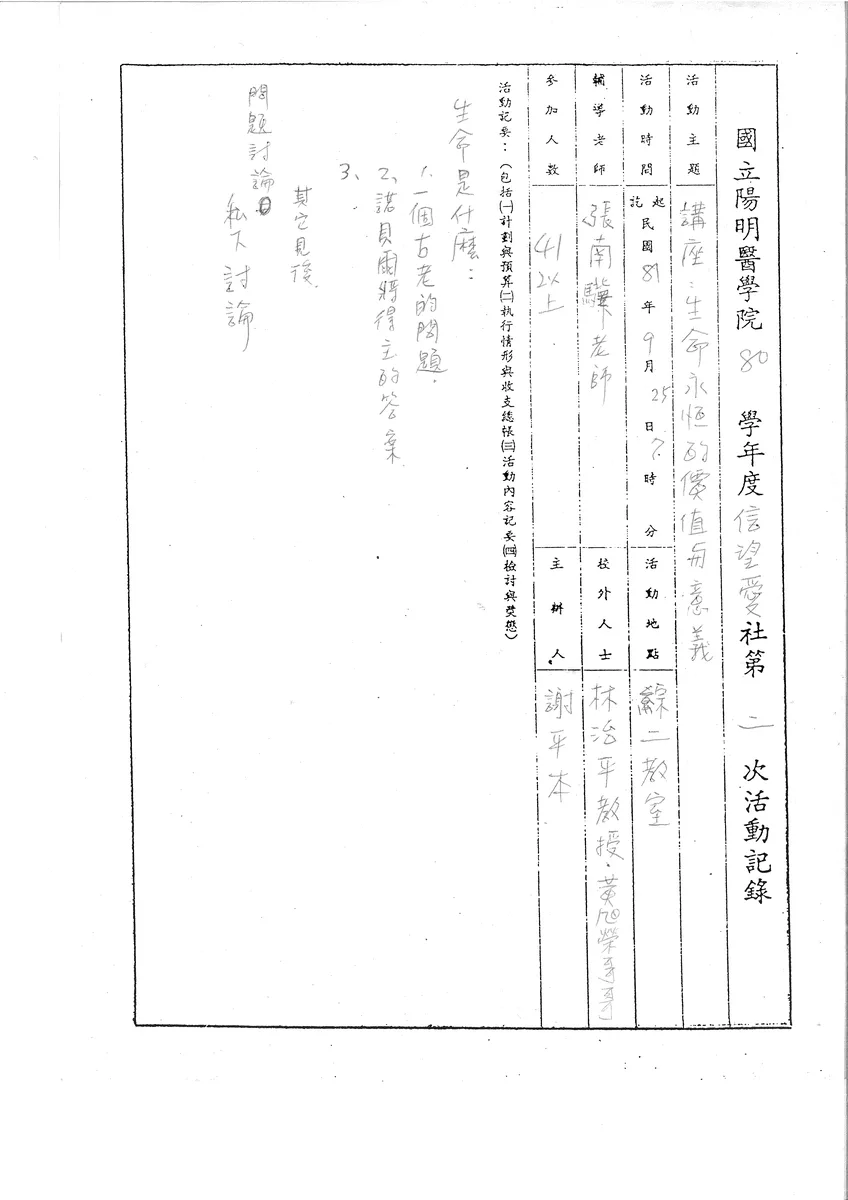 國立陽明醫學院 80 學年度信望愛社第 二 次活動記錄
活動主題 講座:生命永恆的價值與意義
活動時間 起訖 民國 81 年 9 月 25 日 7 時 分 活動地點 綜二教室
輔導老師 張南驥老師 校外人士 林治平教授.黃旭榮哥哥
參加人數 41以上 主辦人 謝平本
活動記要:(包括㈠計劃與預算㈡執行情形與收支總帳㈢活動內容記要㈣檢討與獎懲)
生命是什麼:
1.一個古老的問題.
2、諾貝爾將得主的答案
3、
其它見後
問題討論
私下討論